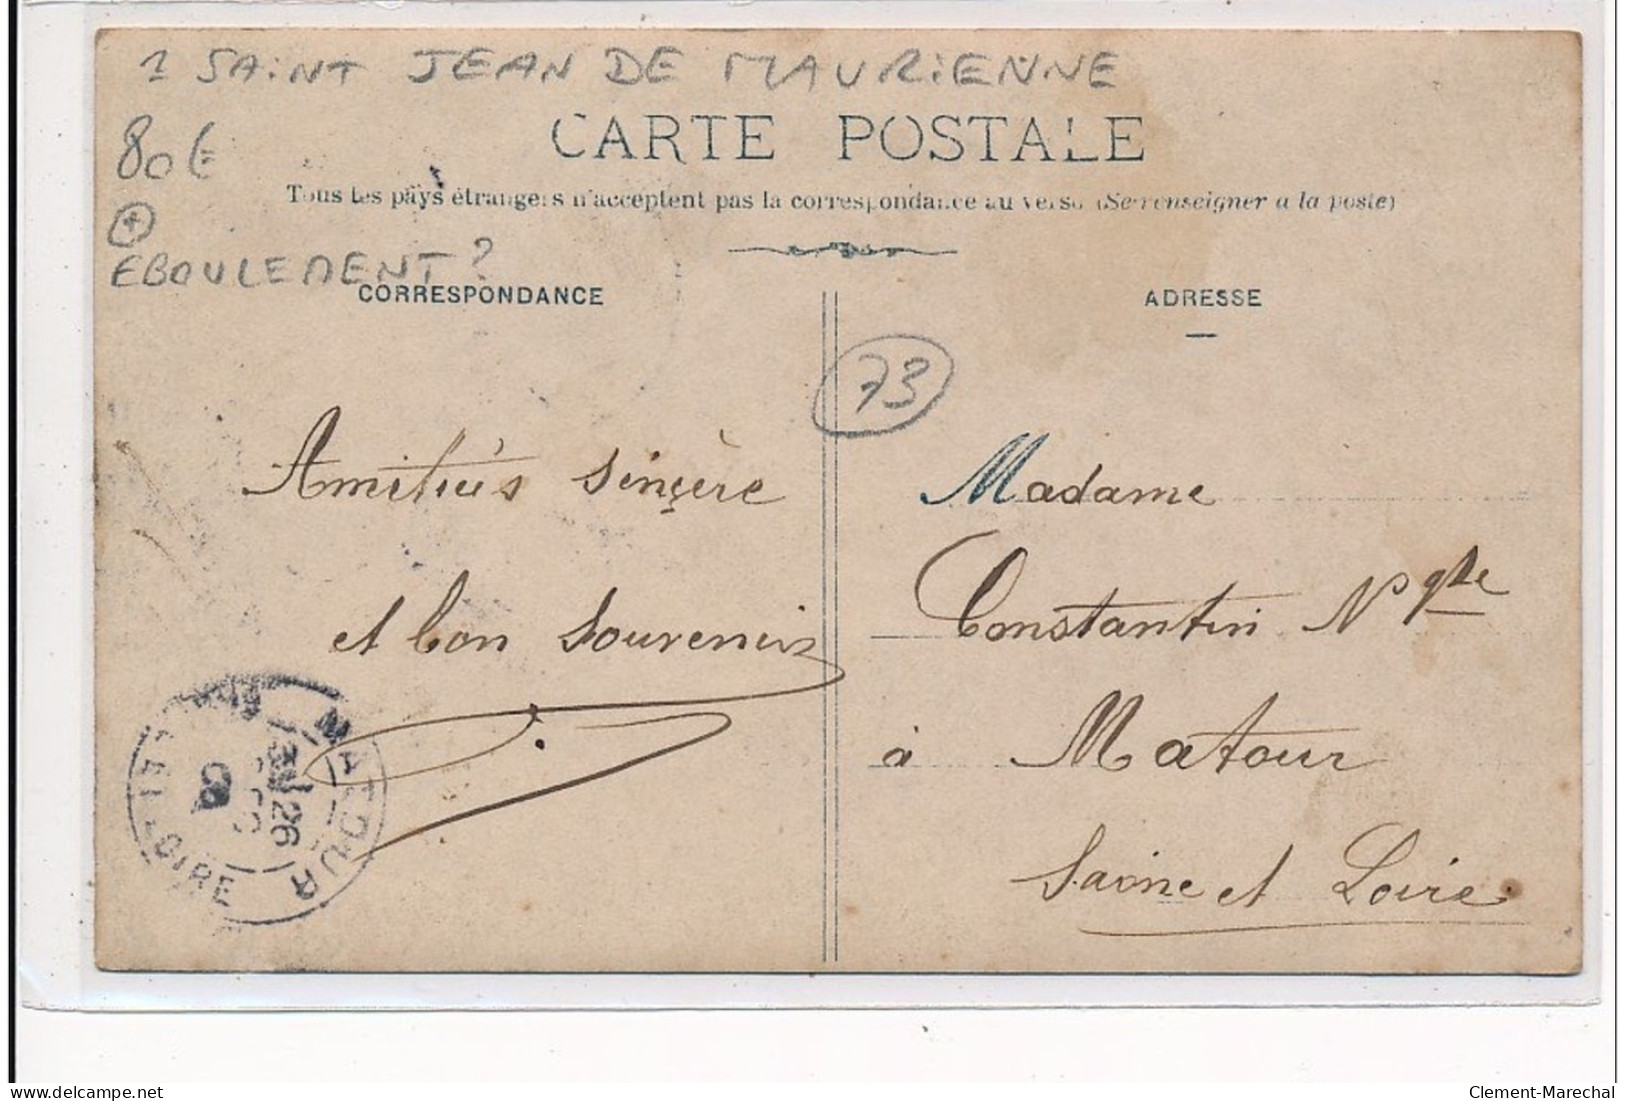 1 SAINT JEAN DE MAURIENNE
80€
+
EBOULEMENT ?
CARTE POSTALE
Tous les pays étrangers n'acceptent pas la correspondance au verso (Se renseigner a la poste)
CORRESPONDANCE
ADRESSE
73
Amitiés sinçère
et bon souvenir
Madame
Constantin Ngte
à Matour
Saône et Loire
MATOUR
26
08
ET LOIRE
delcampe.net
Clement-Marechal